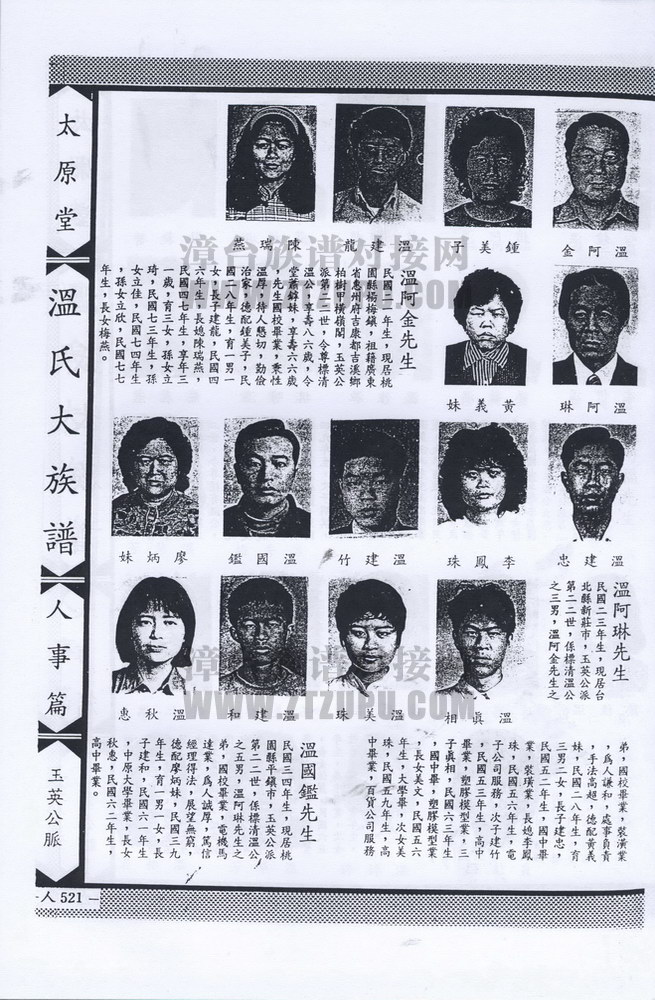 太原堂
溫氏大族譜
人事篇
玉英公脈
人 521
溫阿金
鍾美子
溫建龍
陳瑞燕
溫阿金先生
民國二一年生，現居桃
園縣楊梅鎮，祖籍廣東
省惠州府吉康都吉溪鄉
柏樹甲橫嶺閣，玉英公
派第二二世，令尊標清
溫公，享壽八六歲，令
堂蕭鏲妹，享壽六六歲
，先生國校畢業，秉性
溫厚，待人懇切，勤儉
治家，德配鍾美子，民
國二八年生，育一男一
女，長子建龍，民國四
六年生，長媳陳瑞燕，
民國四七年生，享年三
一歲，育三女，孫女立
琦，民國七三年生，孫
女立佳，民國七四年生
，孫女立欣，民國七七
年生，長女梅燕。
溫阿琳
黃義妹
溫建忠
李鳳珠
溫建竹
溫國鑑
廖炳妹
溫阿琳先生
民國二三年生，現居台
北縣新莊市，玉英公派
第二二世，係標清溫公
之三男，溫阿金先生之
溫真相
溫美珠
溫建和
溫秋惠
弟，國校畢業，裝潢業
，為人謙和，處事負責
，手法高超，德配黃義
妹，民國二八年生，育
三男二女，長子建忠，
民國五二年生，國中畢
業，裝璜業，長媳李鳳
珠，民國五六年生，電
子公司服務，次子建竹
，民國五三年生，高中
畢業，塑膠模型業，三
子真相，民國六三年生
，國中畢，塑膠模型業
，長女美文，民國五六
年生，大學畢，次女美
珠，民國五九年生，高
中畢業，百貨公司服務
溫國鑑先生
民國三四年生，現居桃
園縣平鎮市，玉英公派
第二二世，係標清溫公
之五男，溫阿琳先生之
弟，國校畢業，電機馬
達業，爲人誠厚，篤信
經理得法，展望無窮，
德配廖炳妹，民國三九
年生，育一男一女，長
子建和，民國六一年生
，中原大學畢業，長女
秋惠，民國六二年生，
高中畢業。
漳台族谱对接网
漳台族谱对接网
WWW.ZTZUPU.COM